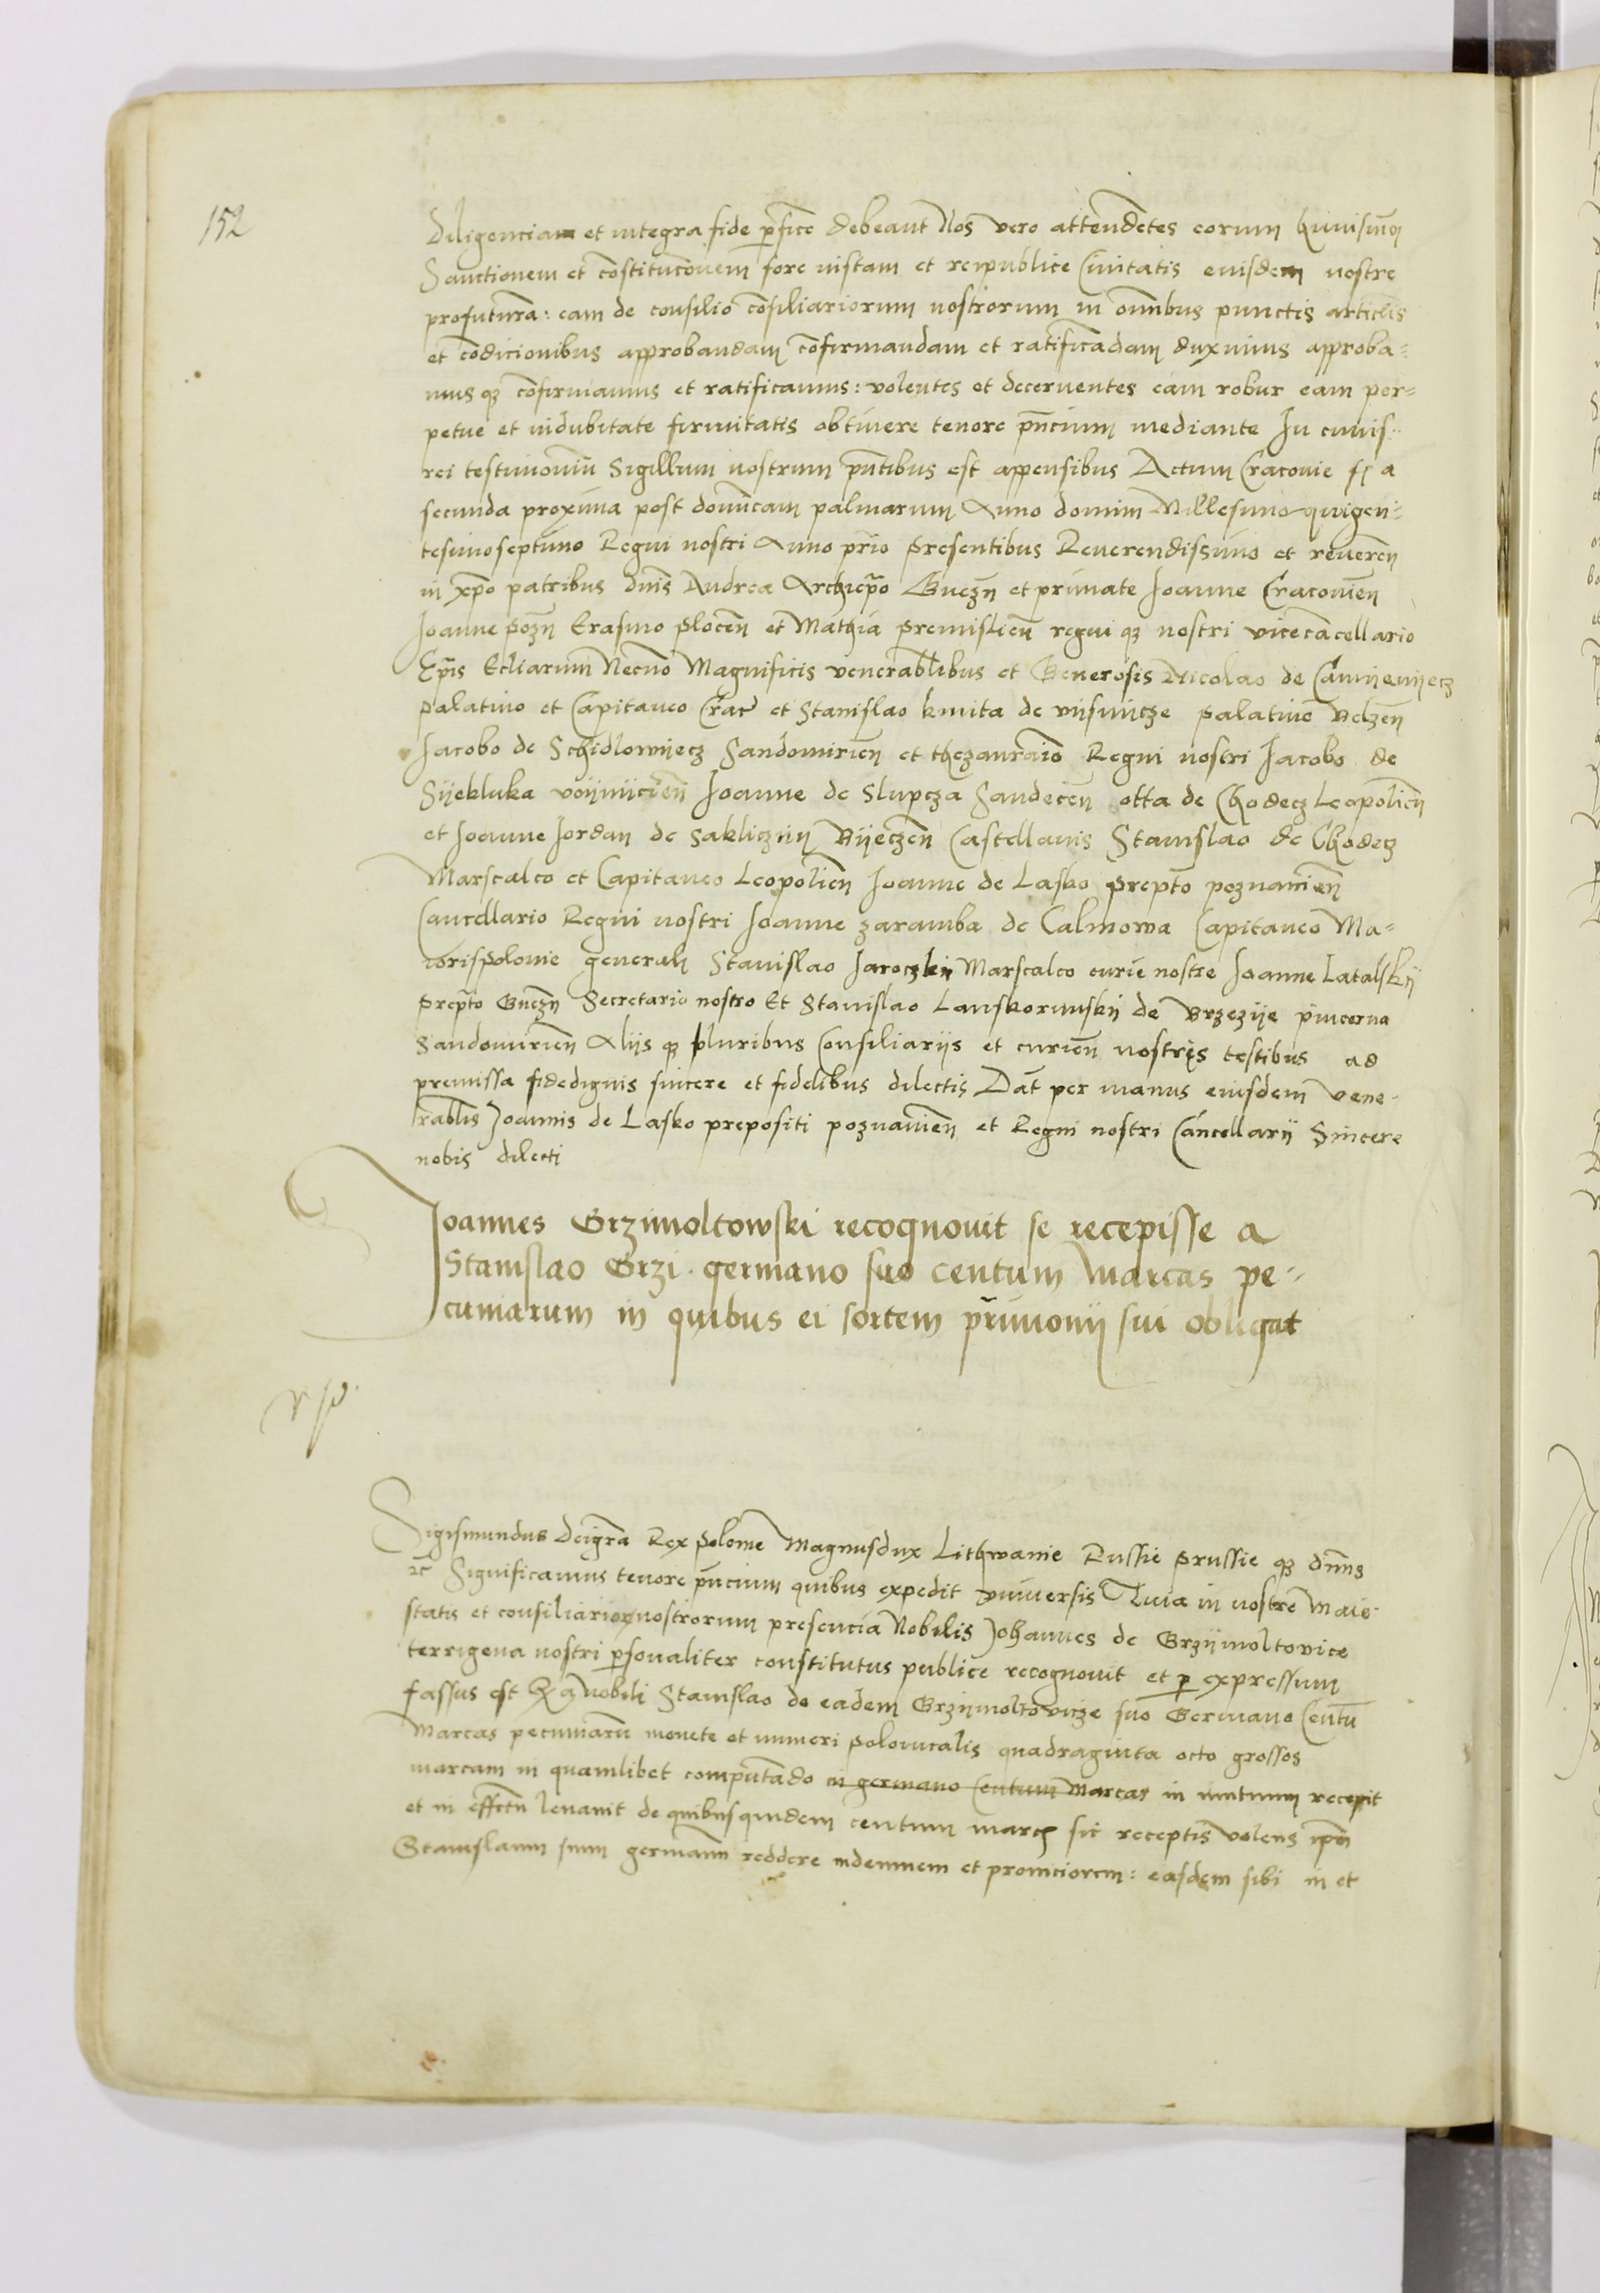 152
Diligenciam et integra fide ꝑficē debeant Nos vero attendētes eorum huiusmōi
Sanctionem et cōstitucōnem fore iustam et reipublice Ciuitatis eiusdem nostre
profuturā : eam de consilio cōsiliariorum nostrorum in omībus punctis articlis
et cōdicionibus approbandam cōfirmandam et ratificādam duximus approba-
mus qȝ cōfirmamus et ratificamus : volentes et decernentes eam robur eam per-
petue et indubitate firmitatis obtinere tenore pn̄cium mediante In cuius
rei testimoniū Sigillum nostrum pn̄tibus est appensibus Actum Cracouie f a
secunda proxima post domīcam palmarum Anno domini Millesimo quigen-
tesimoseptimo Regni nostri Anno prīo presentibus Reuerendissimo et reuerēn
in xp̄o patribus dnīs Andrea Archiep̄o Gnezn̄ et primate Joanne Cracouien̄
Joanne pozn̄ Erasmo plocēn et Mathia premislien̄ regni qȝ nostri vicecācellario
Ep̄is Ecl̄iarum Necnō Magnificis venerabl̄ibus et Generosis Nicolao de Camijenijecz
palatino et Capitaneo Crac̄ et Stanislao kmita de vijsnicze palatino Belzēn
Jacobo de Schidlowijecz Sandomiriēn et thezaurario Regni nostri Jacobo de
Sijekluka voijnijcien̄ Joanne de Slupcza Sandecēn otta de Chodecz Leopoliēn
et Joanne Jordan de Sakliczin Bijeczēn Castellanis Stanislao de Chodecz
Marscalco et Capitaneo Leopoliēn Joanne de Lasko prep̄to poznaniēn
Cancellario Regni nostri Joanne zaramba de Calinowa Capitaneo Ma-
iorispolonie generali Stanislao Jaroczkij Marscalco curie nostre Joanne Latalskij
prep̄to Gnezn̄ Secretario nostro Et Stanislao Lanskorunskij de Brzezije pincerna
Sandomiriēn Alijs qȝ pluribus Consiliarijs et curiēn nostris testibus ad
premissa fidedignis sincere et fidelibus dilectis Dat̄ per manus eiusdem vene-
rabl̄is Joannis de Lasko prepositi poznaniēn et Regni nostri Cancellarij Sincere
nobis dilecti
Joannes Grzimoltowski recognouit se recepisse a
Stanislao Grzi. germano suo centum Marcas pe-
cuniarum in quibus ei sortem pr̄imonij sui obligat
r p.
Sigismundus Deigrā Rex polonie Magnusdux Lithwanie Russie prussie qȝ dnn̄s
etc̄ Significamus tenore pn̄cium quibus expedit vniuersis Quia in nostre Maie-
statis et consiliariorum nostrorum presencia Nobilis Johannes de Grzijmoltovice
terrigena nostri ꝑsonaliter constitutus publice recognouit et ꝑ expressum
fassus est Qz a nobili Stanislao de eadem Grzijmoltovicze suo Germano Centū
Marcas pecuniarū monete et numeri polonicalis quadraginta octo grossos
marcam in quamlibet computādo in germano Centum Marcas in mutuum recepit
et in effectū leuauit de quibusquidem centum marc sic receptis volens ip̄m
Stanislaum suum germanū reddere indemnem et promciorem : easdem sibi in et